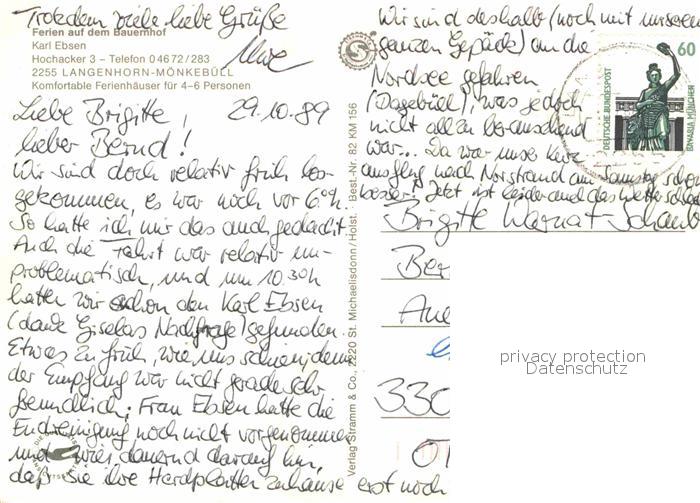 Trotzdem viele liebe Grüße
Uwe
Ferien auf dem Bauernhof
Karl Ebsen
Hochacker 3 – Telefon 04672/283
2255 LANGENHORN-MÖNKEBÜLL
Komfortable Ferienhäuser für 4–6 Personen
Liebe Brigitte, 29.10.89
lieber Bernd!
Wir sind doch relativ früh los-
gekommen, es war noch vor 6°°h.
So hatte ich mir das auch gedacht.
Auch die Fahrt war relativ un-
problematisch, und um 10.30h
hatten wir schon den Karl Ebsen
(dank Giselas Nachfrage) gefunden.
Etwas zu früh, wie uns schien, denn
der Empfang war nicht gerade sehr
freundlich: Frau Ebsen hatte die
Endreinigung noch nicht vorgenommen
und wies dauernd darauf hin,
daß sie ihre Herdplatten zuhause erst noch
Verlag Stramm & Co., 2220 St. Michaelisdonn/Holst. · Best.-Nr. 82 KM 156
Wir sind deshalb (noch mit unserem
ganzen Gepäck) an die
Nordsee gefahren
(Dagebüll), was jedoch
nicht allzu berauschend
war... Da war unser Kurz-
ausflug nach Norstrand am Samstag schon
besser! Jetzt ist leider auch das Wetter schlecht
60
DEUTSCHE BUNDESPOST
BAVARIA MÜNCHEN
Brigitte Warnat-Schaub
Ber
Aue
330
privacy protection
Datenschutz